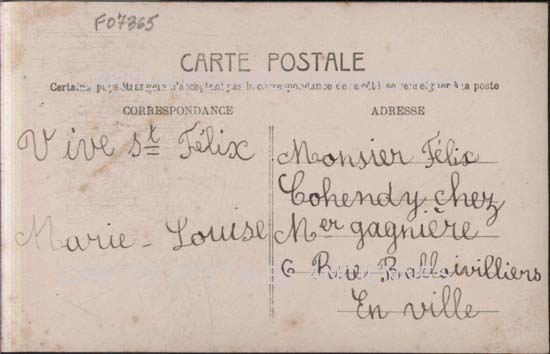 F07365
CARTE POSTALE
Certains pays étrangers n'acceptent pas la correspondance de ce côté se renseigner à la poste
CORRESPONDANCE
Vive St Félix
Marie-Louise
ADRESSE
Monsier Félix
Cohendy chez
Mer gagnière
6 Rue Ballaivilliers
En ville